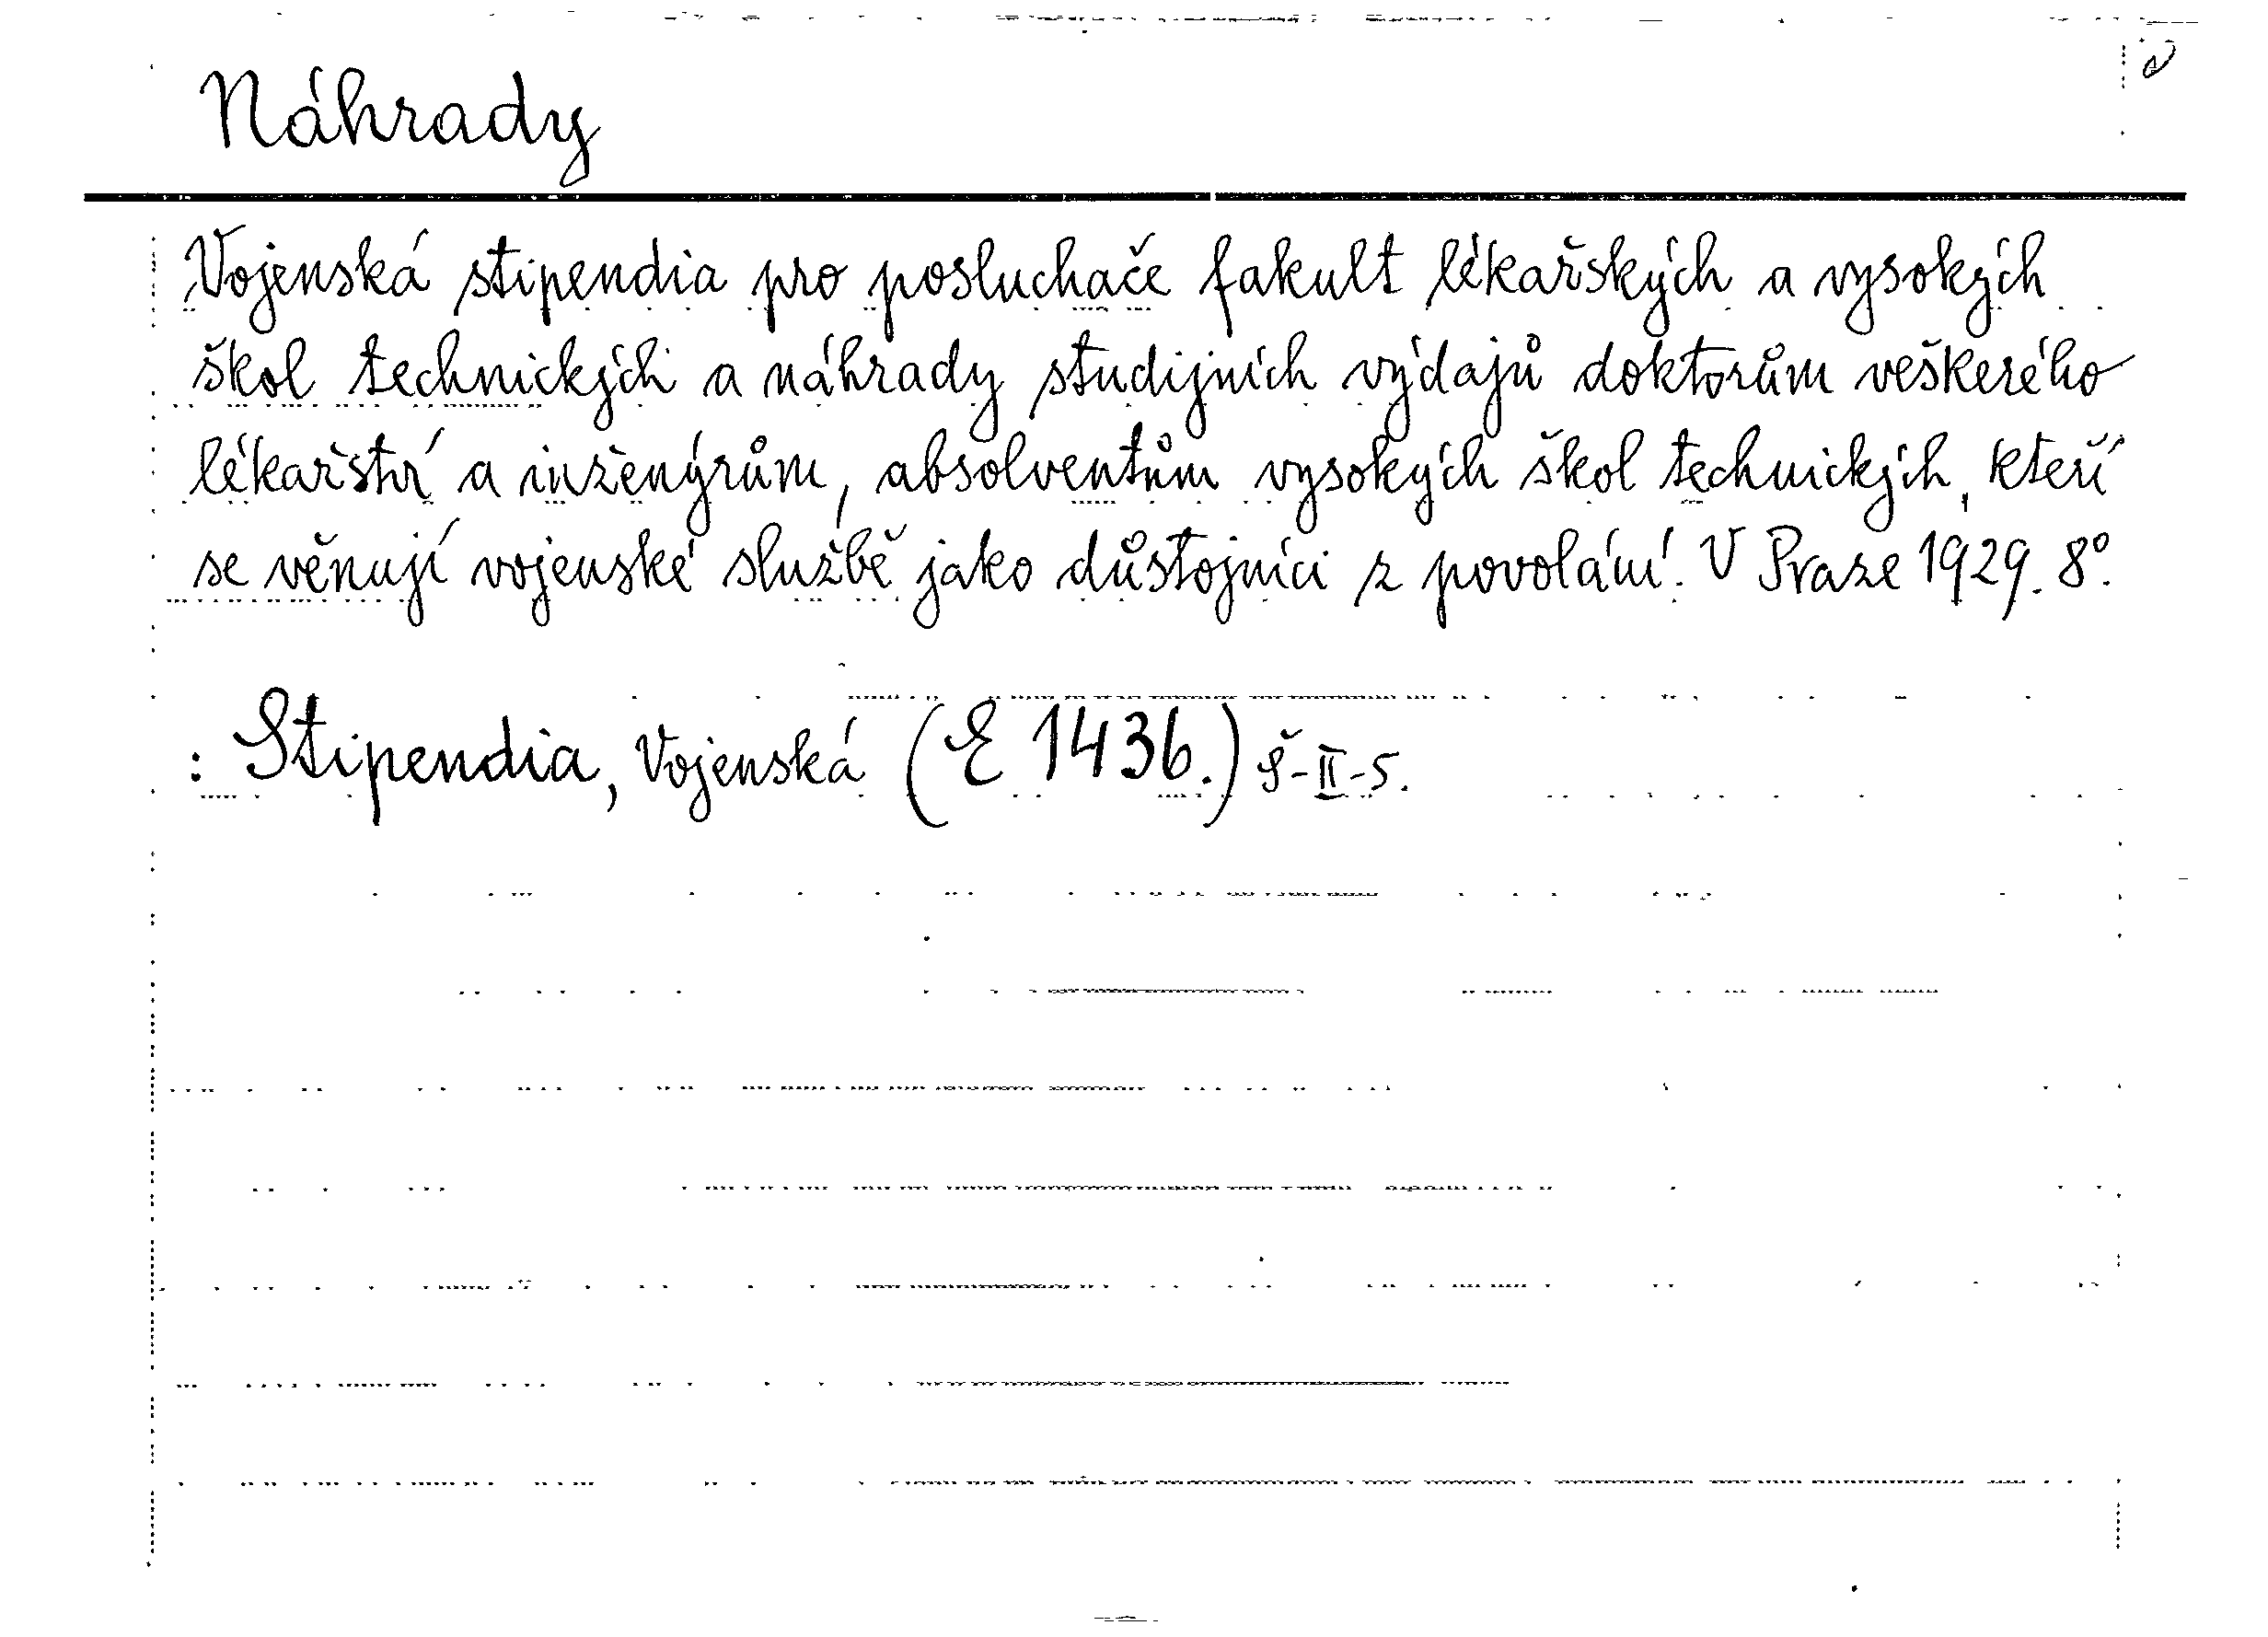 Náhrady
Vojenská stipendia pro posluchače fakult lékařských a vysokých
škol technických a náhrady studijních výdajů doktorům veškerého
lékařství a inženýrům, absolventům vysokých škol technických, kteří
se věnují vojenské službě jako důstojníci z povolání. V Praze 1929. 8°.
: Stipendia, Vojenská (E 1436.) Š-II-5.